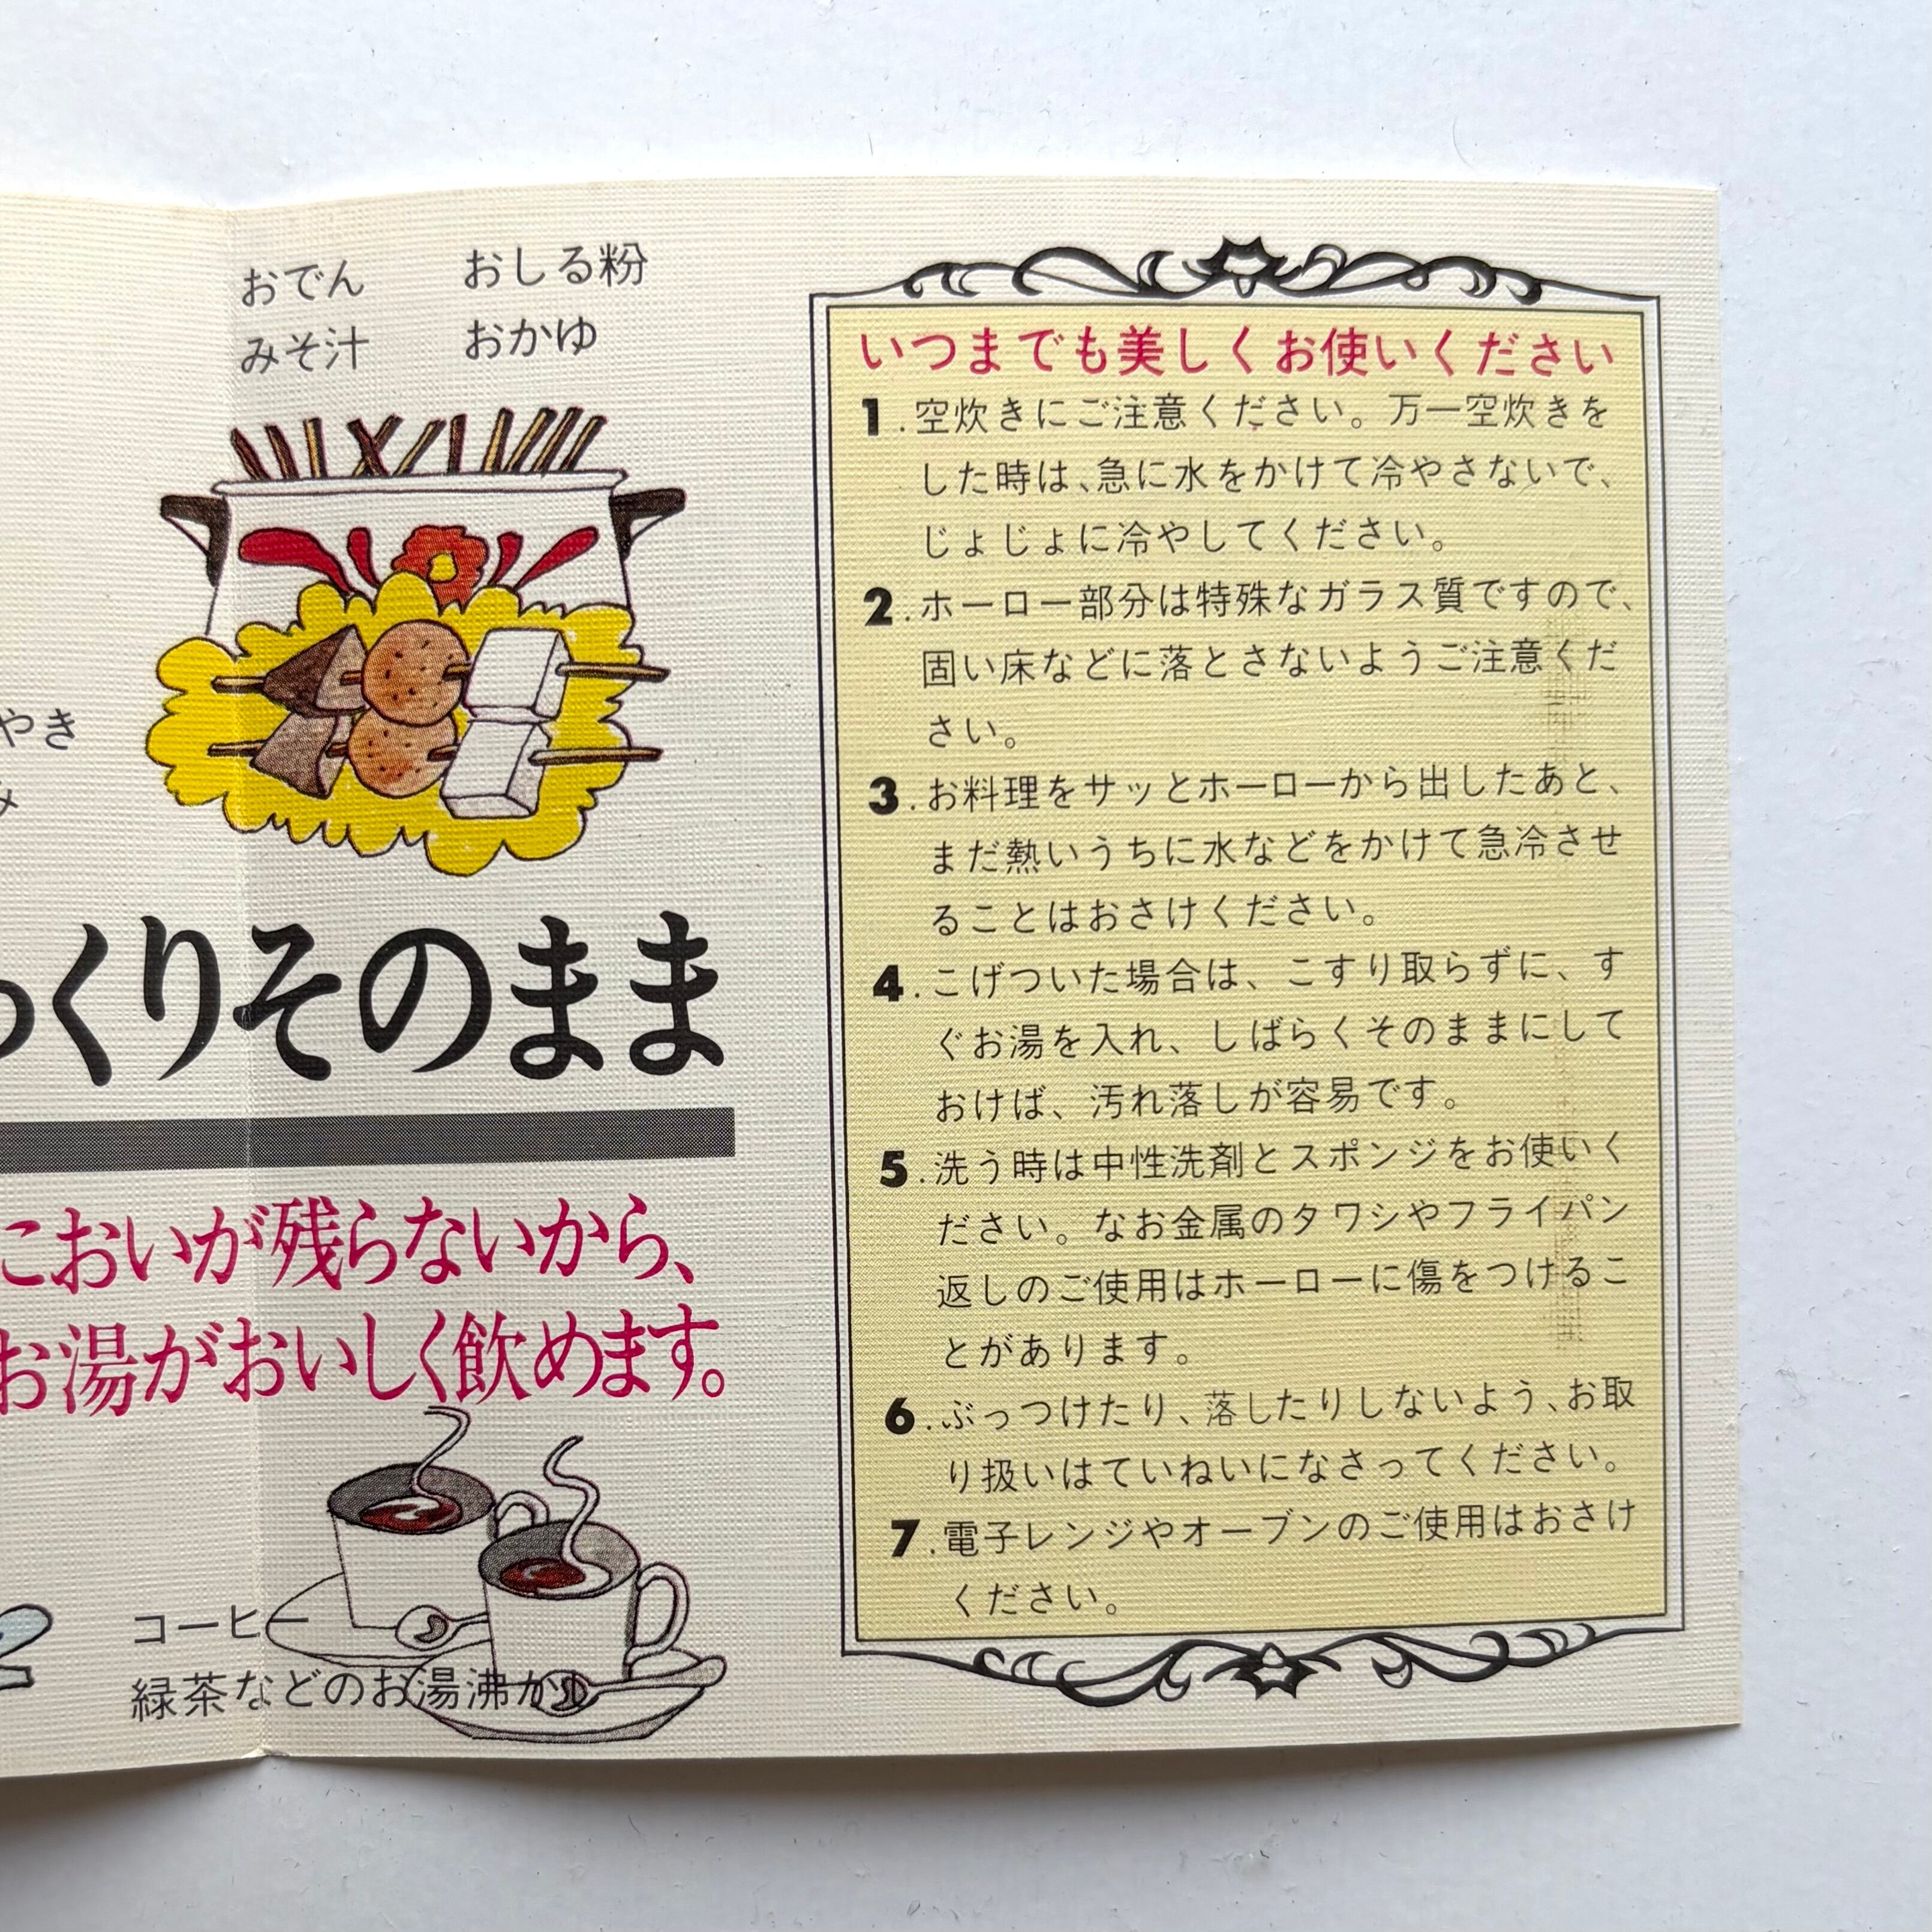 おでん
おしる粉
みそ汁
おかゆ
やき
み
っくりそのまま
においが残らないから、
お湯がおいしく飲めます。
コーヒー
緑茶などのお湯沸かし
いつまでも美しくお使いください
1.空炊きにご注意ください。万一空炊きを
した時は、急に水をかけて冷やさないで、
じょじょに冷やしてください。
2.ホーロー部分は特殊なガラス質ですので、
固い床などに落とさないようご注意くだ
さい。
3.お料理をサッとホーローから出したあと、
まだ熱いうちに水などをかけて急冷させ
ることはおさけください。
4.こげついた場合は、こすり取らずに、す
ぐお湯を入れ、しばらくそのままにして
おけば、汚れ落しが容易です。
5.洗う時は中性洗剤とスポンジをお使いく
ださい。なお金属のタワシやフライパン
返しのご使用はホーローに傷をつけるこ
とがあります。
6.ぶっつけたり、落したりしないよう、お取
り扱いはていねいになさってください。
7.電子レンジやオーブンのご使用はおさけ
ください。